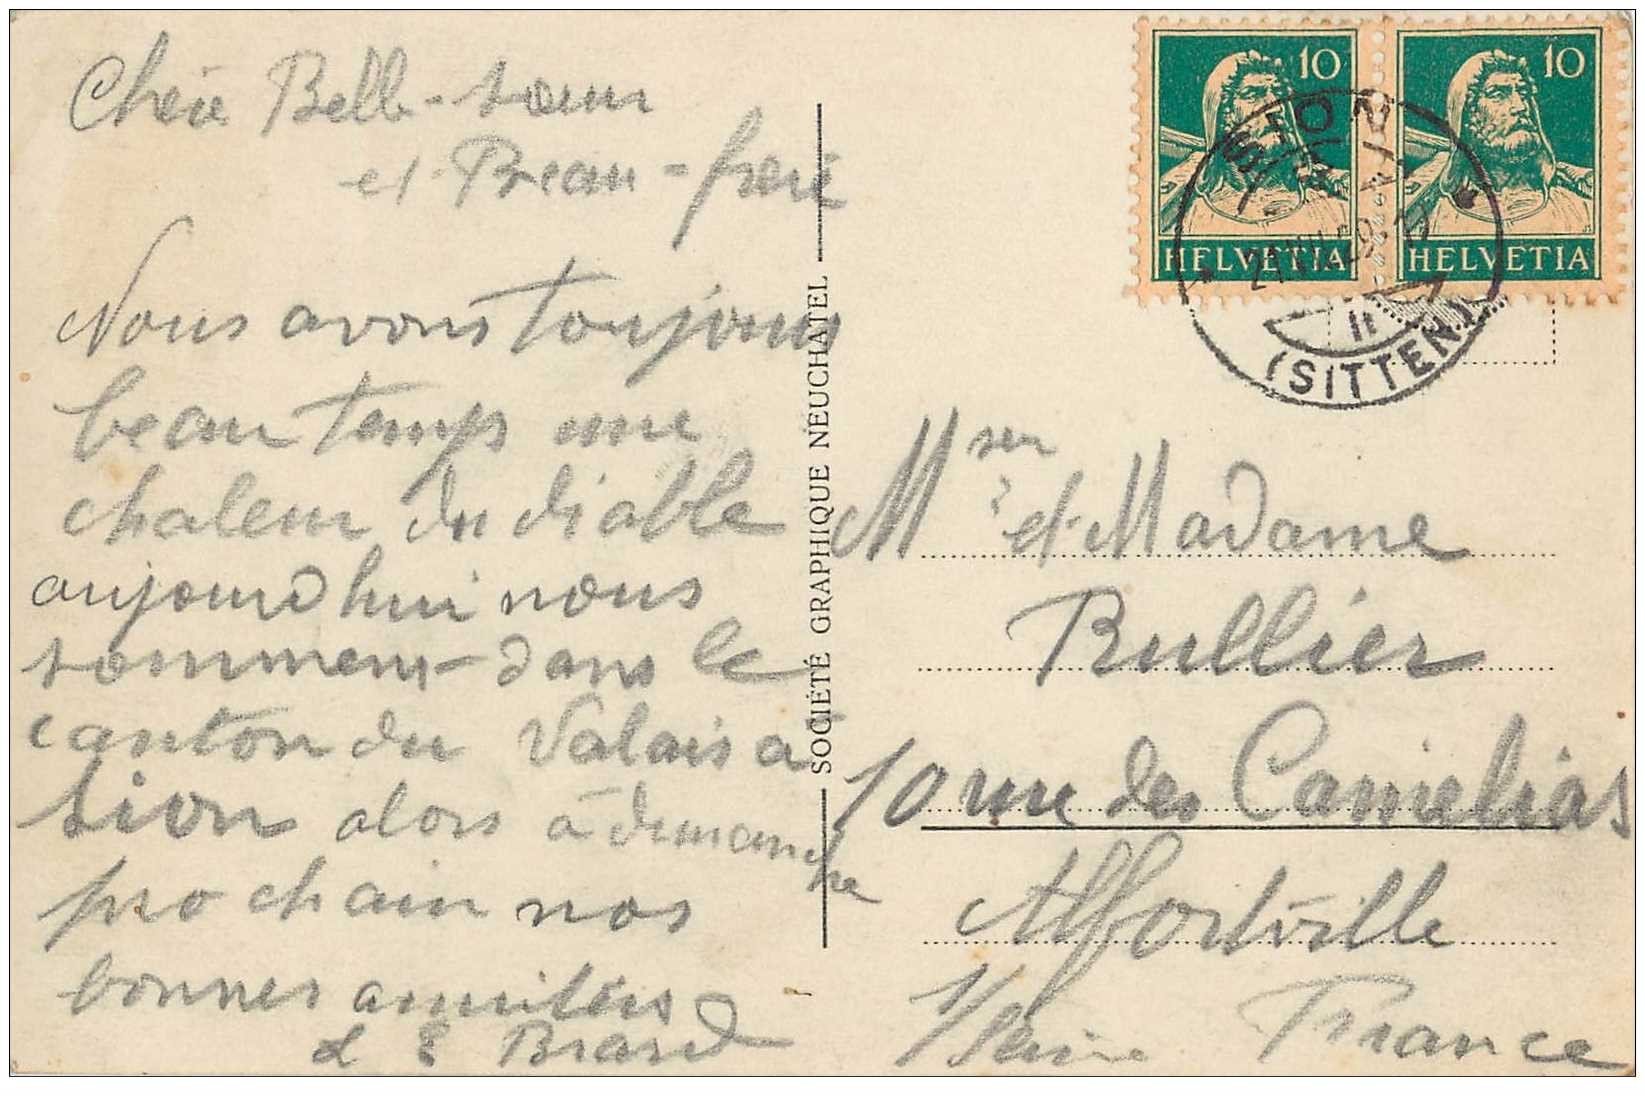 Chère Belle-sœur
et Beau-frere
Nous avons toujours
beau temps une
chaleur du diable
aujourd hui nous
sommens dans le
canton du Valais a
Sion alors à dimanche
prochain nos
bonnes amitiers
L E Brard
SOCIÉTÉ GRAPHIQUE NEUCHATEL
10
HELVETIA
10
HELVETIA
SION
(SITTEN)
Mser et Madame
Rullier
10 rue des Camelias
Alfortville
s/Seine France